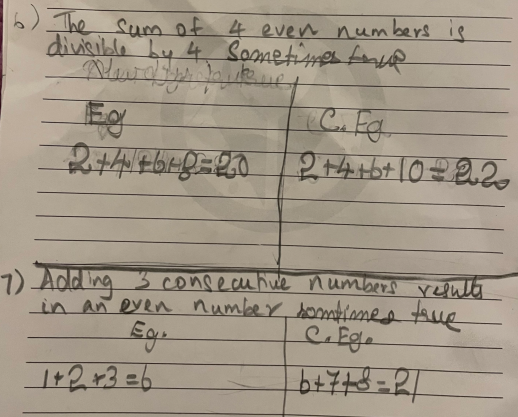 6) The sum of 4 even numbers is
divisible by 4. Sometimes true
Eg
C. Eg.
2+4+6+8=20
2+4+6+10=22
7) Adding 3 consecutive numbers results
in an even number somtimes true
Eg.
C. Eg.
1+2+3=6
6+7+8=21